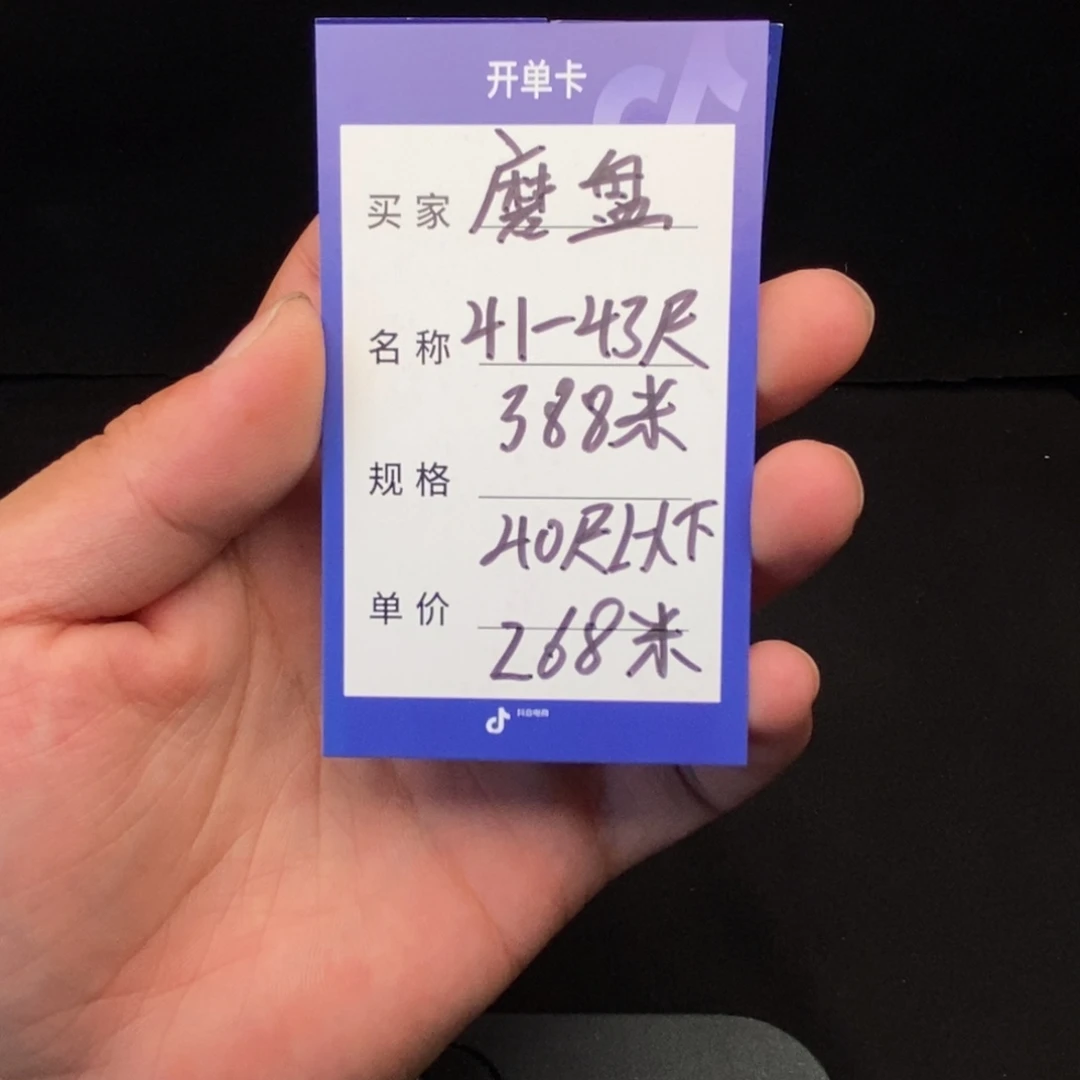 开单卡
买家 磨盘
名称 41-43尺
388米
规格
40尺以下
单价
268米
抖音电商